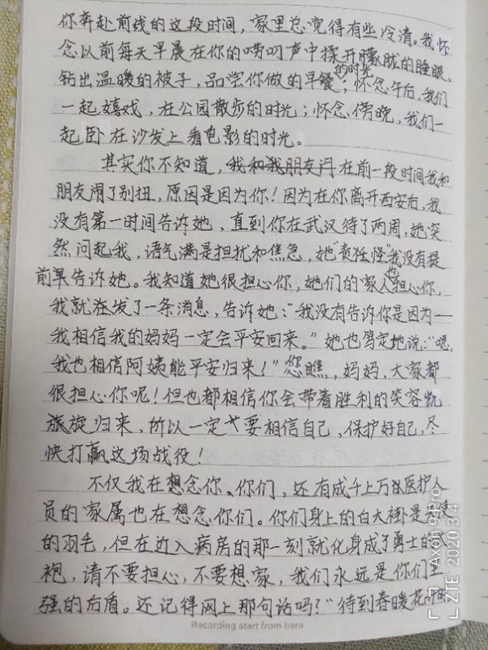 你奔赴前线的这段时间，家里总觉得有些冷清。我怀
念以前每天早晨在你的唠叨声中揉开朦胧的睡眼、
钻出温暖的被子，品尝你做的早餐的时光；怀念午后，我们
一起嬉戏，在公园散步的时光；怀念傍晚，我们一
起卧在沙发上看电影的时光。
其实你不知道，我和我朋友闩在前一段时间我和
朋友闹了别扭，原因是因为你！因为在你离开西安后，我
没有第一时间告诉她，直到你在武汉待了两周，她突
然问起我，语气满是担忧和焦急，她"责怪怪"我没有提
前早告诉她。我知道她很担心你，她们的家人也担心你，
我就狂发了一条消息，告诉她："我没有告诉你是因为—
我相信我的妈妈一定会平安回来。"她也笃定地说："嗯，
我也相信阿姨能平安归来！"您瞧，妈妈，大家都
很担心你呢！但也都相信你会带着胜利的笑容凯
旅旋归来，所以一定要相信自己，保护好自己，尽
快打赢这场战役！
不仅我在想念你、你们，还有成千上万法医护人
员的家属也在想念你们。你们身上的白大褂是天使
的羽毛，但在迈入病房的那一刻就化身成了勇士的战
袍，请不要担心，不要想家，我们永远是你们坚
强的后盾。还记得网上那句话吗？"待到春暖花开
Recording start from here
ZTE 2020.3.4
Axon 9 Pro